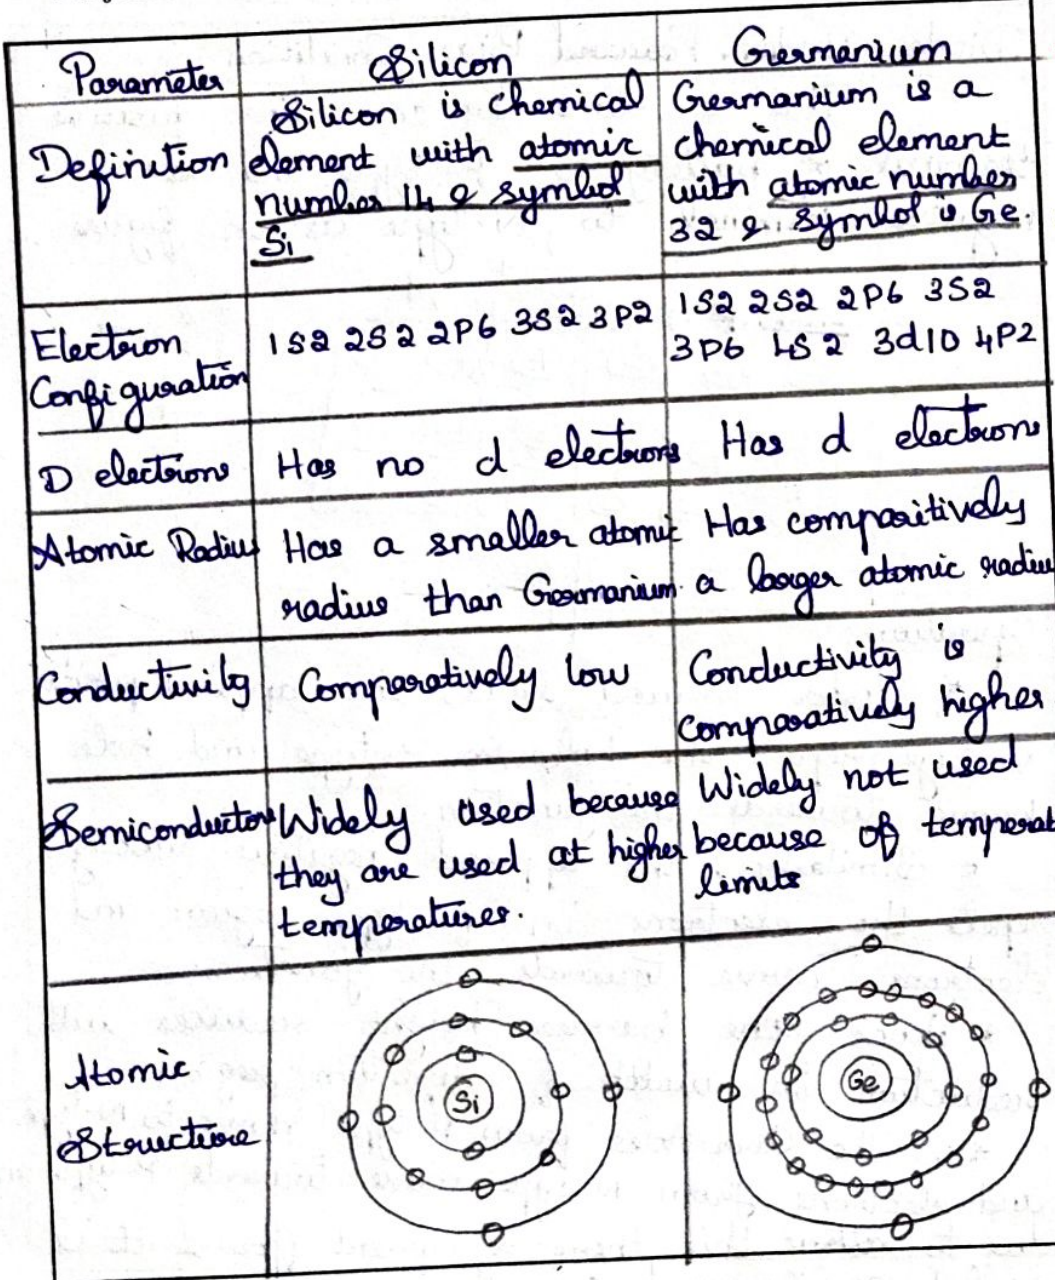 Parameter Silicon Germanium
Definition
Silicon is chemical
element with atomic
number 14 & symbol
Si
Germanium is a
chemical element
with atomic number
32 & symbol is Ge.
Electron
Configuration
1S2 2S2 2P6 3S2 3P2
1S2 2S2 2P6 3S2
3P6 4S2 3d10 4P2
D electrons
Has no d electrons
Has d electrons
Atomic Radius
Has a smaller atomic
radius than Germanium.
Has comparitively
a larger atomic radius
Conductivity
Comparatively low
Conductivity is
comparatively higher
Semiconductors
Widely used because
they are used at higher
temperatures.
Widely not used
because of temperat
limits
Atomic
Structure
Si
Ge